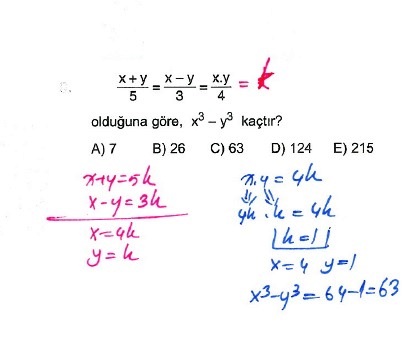 x + y / 5 = x − y / 3 = x.y / 4 = k
olduğuna göre, x³ − y³ kaçtır?
A) 7 B) 26 C) 63 D) 124 E) 215
x+y=5k
x-y=3k
x=4k
y=k
x.y = 4k
4k . k = 4k
k=1
x=4 y=1
x³-y³=64-1=63